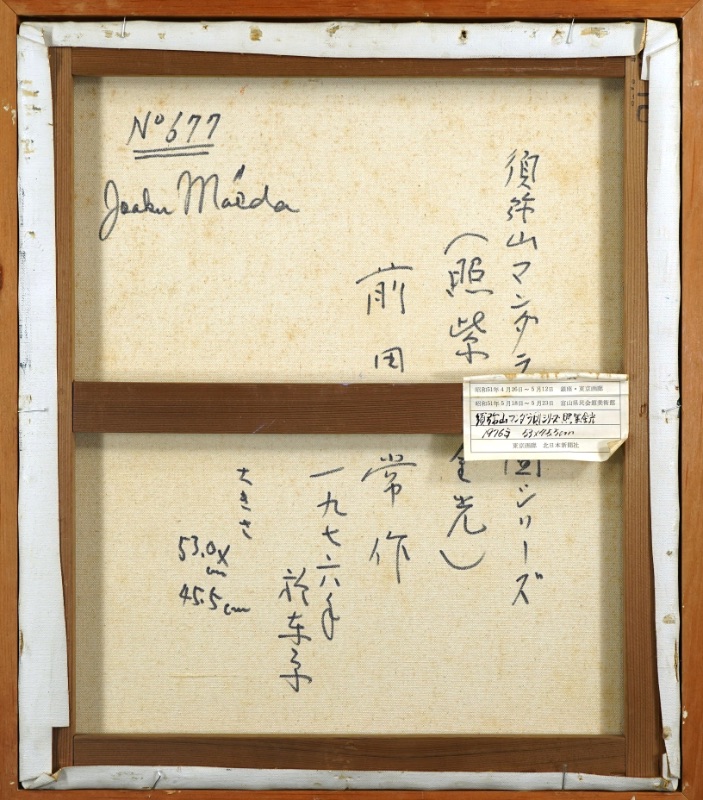 No 677
Joaku Maëda
須弥山マンダラ
図シリーズ
(照紫
金光)
前田
常作
一九七六年
於東京
大きさ
53.0 x
cm
45.5 cm
昭和51年4月26日~5月12日 銀座・東京画廊
昭和51年5月18日~5月23日 富山県民会館美術館
須弥山マンダラ図シリーズ 照紫金光
1976年 53×45.5cm
東京画廊 北日本新聞社